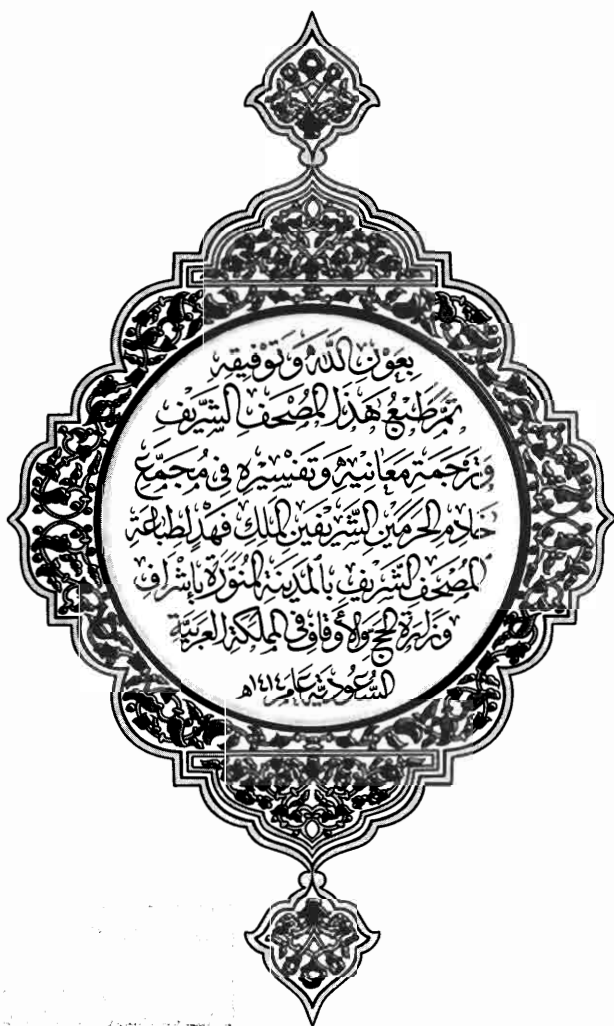 بِعَوْنِ اللَّهِ وَتَوْفِيقِهِ
تَمَّ طَبْعُ هَذَا الْمُصْحَفِ الشَّرِيفِ
وَتَرْجَمَةِ مَعَانِيهِ وَتَفْسِيرِهِ فِي مُجَمَّعِ
خَادِمِ الْحَرَمَيْنِ الشَّرِيفَيْنِ الْمَلِكِ فَهْدٍ لِطِبَاعَةِ
الْمُصْحَفِ الشَّرِيفِ بِالْمَدِينَةِ الْمُنَوَّرَةِ بِإِشْرَافِ
وَزَارَةِ الْحَجِّ وَالْأَوْقَافِ فِي الْمَمْلَكَةِ الْعَرَبِيَّةِ
السُّعُودِيَّةِ عَامَ ١٤١٤هـ